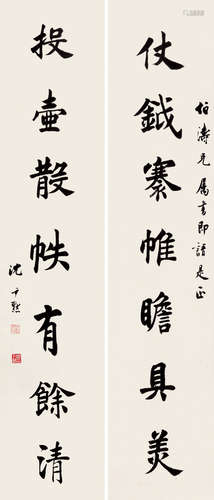 伯濤兄屬書即請是正
仗鉞褰帷瞻具美
投壺散帙有餘清
沈尹默